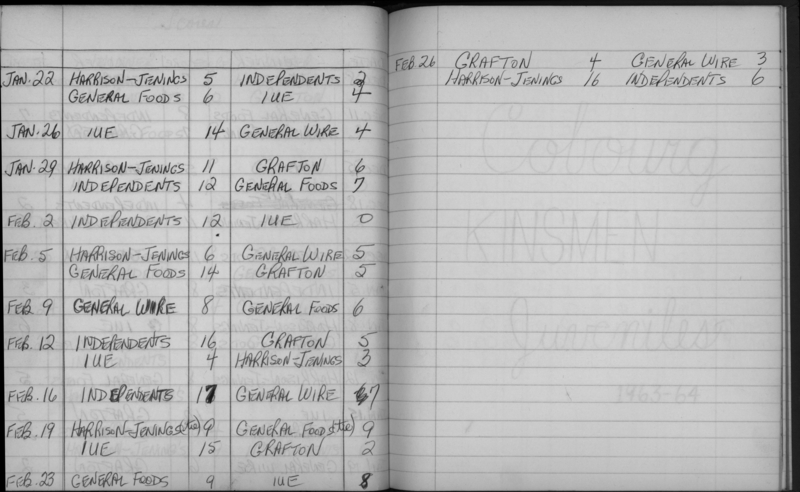 Scores
JAN. 22 HARRISON-JENINGS 5 INDEPENDENTS 2
GENERAL FOODS 6 IUE 4
JAN. 26 IUE 14 GENERAL WIRE 4
JAN. 29 HARRISON-JENINGS 11 GRAFTON 6
INDEPENDENTS 12 GENERAL FOODS 7
FEB. 2 INDEPENDENTS 12 IUE 0
FEB. 5 HARRISON-JENINGS 6 GENERAL WIRE 5
GENERAL FOODS 14 GRAFTON 5
FEB. 9 GENERAL WIRE 8 GENERAL FOODS 6
FEB. 12 INDEPENDENTS 16 GRAFTON 5
IUE 4 HARRISON-JENINGS 3
FEB. 16 INDEPENDENTS 17 GENERAL WIRE 7
FEB. 19 HARRISON-JENINGS (tie) 9 GENERAL FOODS (tie) 9
IUE 15 GRAFTON 2
FEB. 23 GENERAL FOODS 9 IUE 8
FEB 26 GRAFTON 4 GENERAL WIRE 3
HARRISON-JENINGS 16 INDEPENDENTS 6
Cobourg
KINSMEN
Juveniles
1963-64